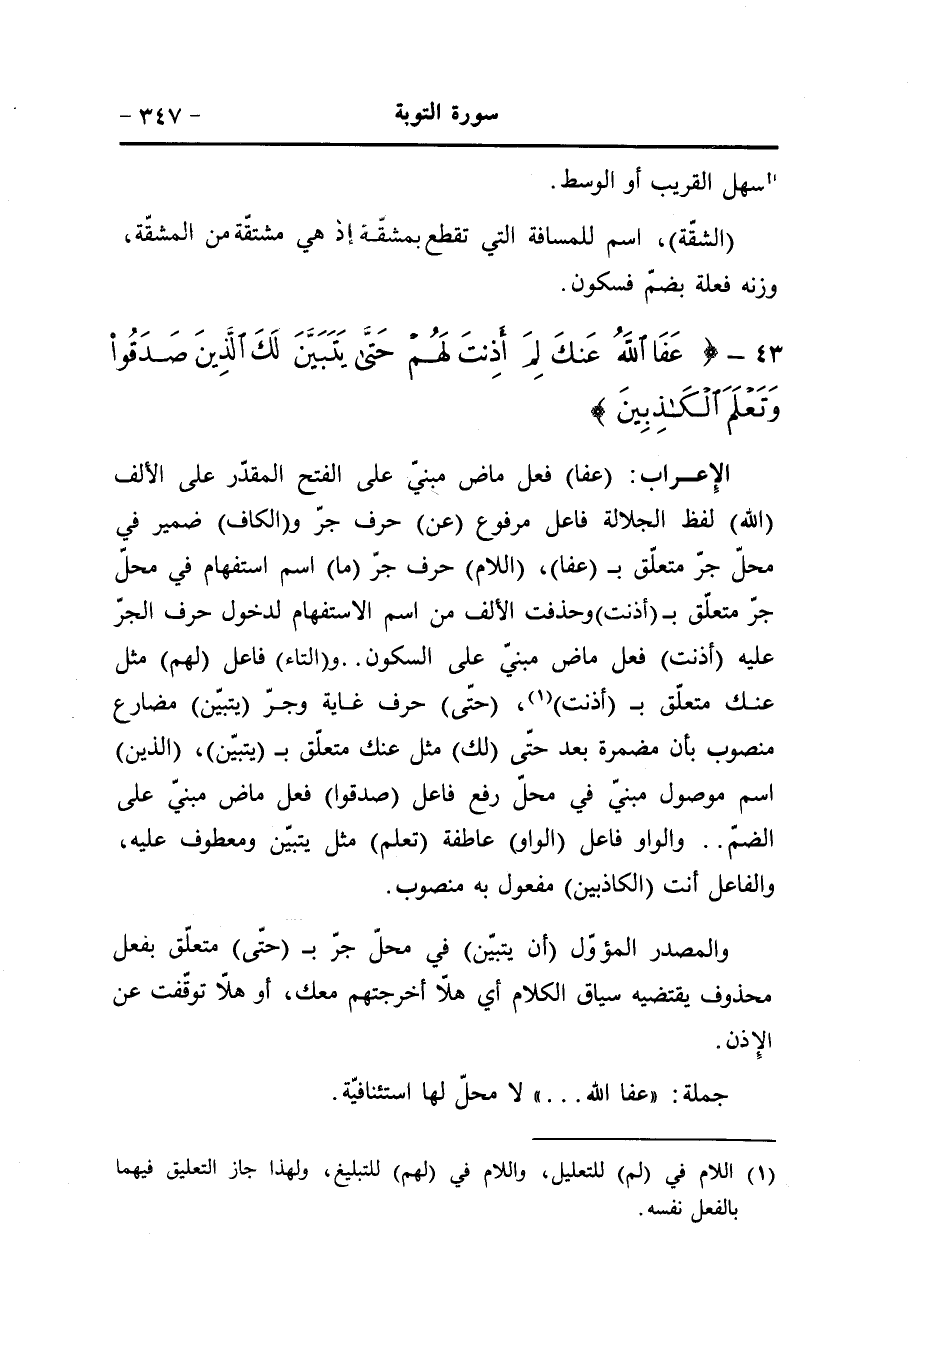 سورة التوبة - ٣٤٧ -
السهل القريب أو الوسط.
(الشقّة)، اسم للمسافة التي تقطع بمشقّة إذ هي مشتقّة من المشقّة،
وزنه فعلة بضمّ فسكون.
٤٣ - ﴿ عَفَا ٱللَّهُ عَنكَ لِمَ أَذِنتَ لَهُمْ حَتَّىٰ يَتَبَيَّنَ لَكَ ٱلَّذِينَ صَدَقُوا۟
وَتَعْلَمَ ٱلْكَـٰذِبِينَ ﴾
الإعـراب: (عفا) فعل ماض مبنيّ على الفتح المقدّر على الألف
(الله) لفظ الجلالة فاعل مرفوع (عن) حرف جرّ و(الكاف) ضمير في
محلّ جرّ متعلّق بـ (عفا)، (اللام) حرف جرّ (ما) اسم استفهام في محلّ
جرّ متعلّق بـ (أذنت)وحذفت الألف من اسم الاستفهام لدخول حرف الجرّ
عليه (أذنت) فعل ماض مبنيّ على السكون..و(التاء) فاعل (لهم) مثل
عنـك متعلّق بـ (أذنت)(١)، (حتّى) حرف غـاية وجـرّ (يتبيّن) مضارع
منصوب بأن مضمرة بعد حتّى (لك) مثل عنك متعلّق بـ (يتبيّن)، (الذين)
اسم موصول مبنيّ في محلّ رفع فاعل (صدقوا) فعل ماض مبنيّ على
الضمّ.. والواو فاعل (الواو) عاطفة (تعلم) مثل يتبيّن ومعطوف عليه،
والفاعل أنت (الكاذبين) مفعول به منصوب.
والمصدر المؤوّل (أن يتبيّن) في محلّ جرّ بـ (حتّى) متعلّق بفعل
محذوف يقتضيه سياق الكلام أي هلّا أخرجتهم معك، أو هلّا توقّفت عن
الإذن.
جملة: «عفا الله...» لا محلّ لها استئنافيّة.
(١) اللام في (لم) للتعليل، واللام في (لهم) للتبليغ، ولهذا جاز التعليق فيهما
بالفعل نفسه.